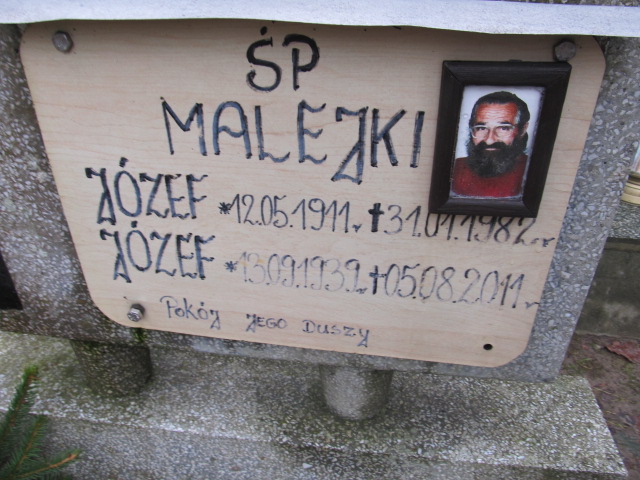 ŚP
MALEJKI
JÓZEF *12.05.1911r ✝31.01.1982r
JÓZEF *13.09.1939r ✝05.08.2011r
POKÓJ JEGO DUSZY